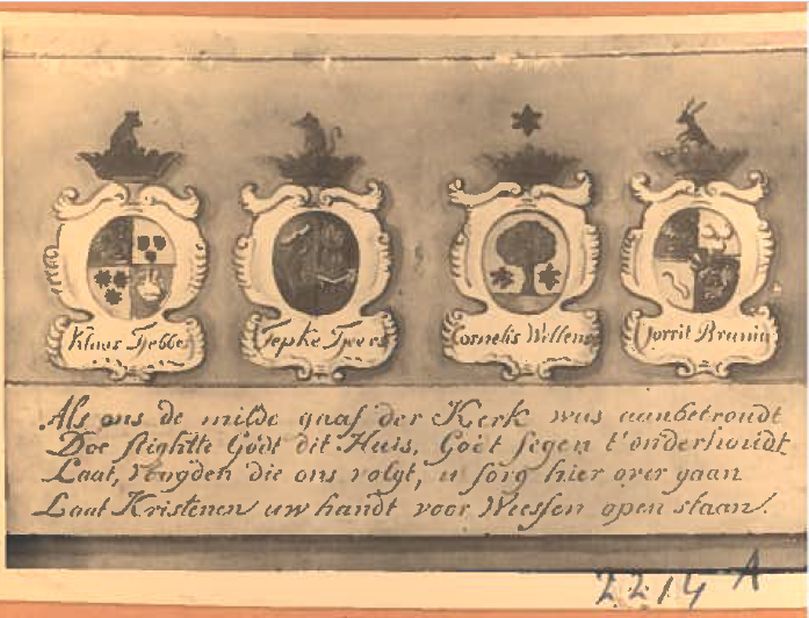 Klaas Tjebbes
Tepke Tjeers
Cornelis Willems
Jorrit Brunin
Als ons de milde gaaf der Kerk was aanbetroudt
Doe stightte Godt dit Huis, Godt segen t'onderhoudt
Laat, Voogden die ons volgt, u sorg hier over gaan
Laat Kristenen uw handt voor Weessen open staan.
2214 A